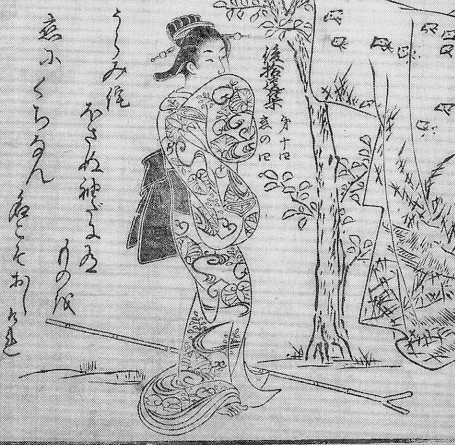 後拾遺集
第十四
恋の四
うらみ侘
ほさぬ袖だに有
ものを
恋にくちなん
名こそおしけれ